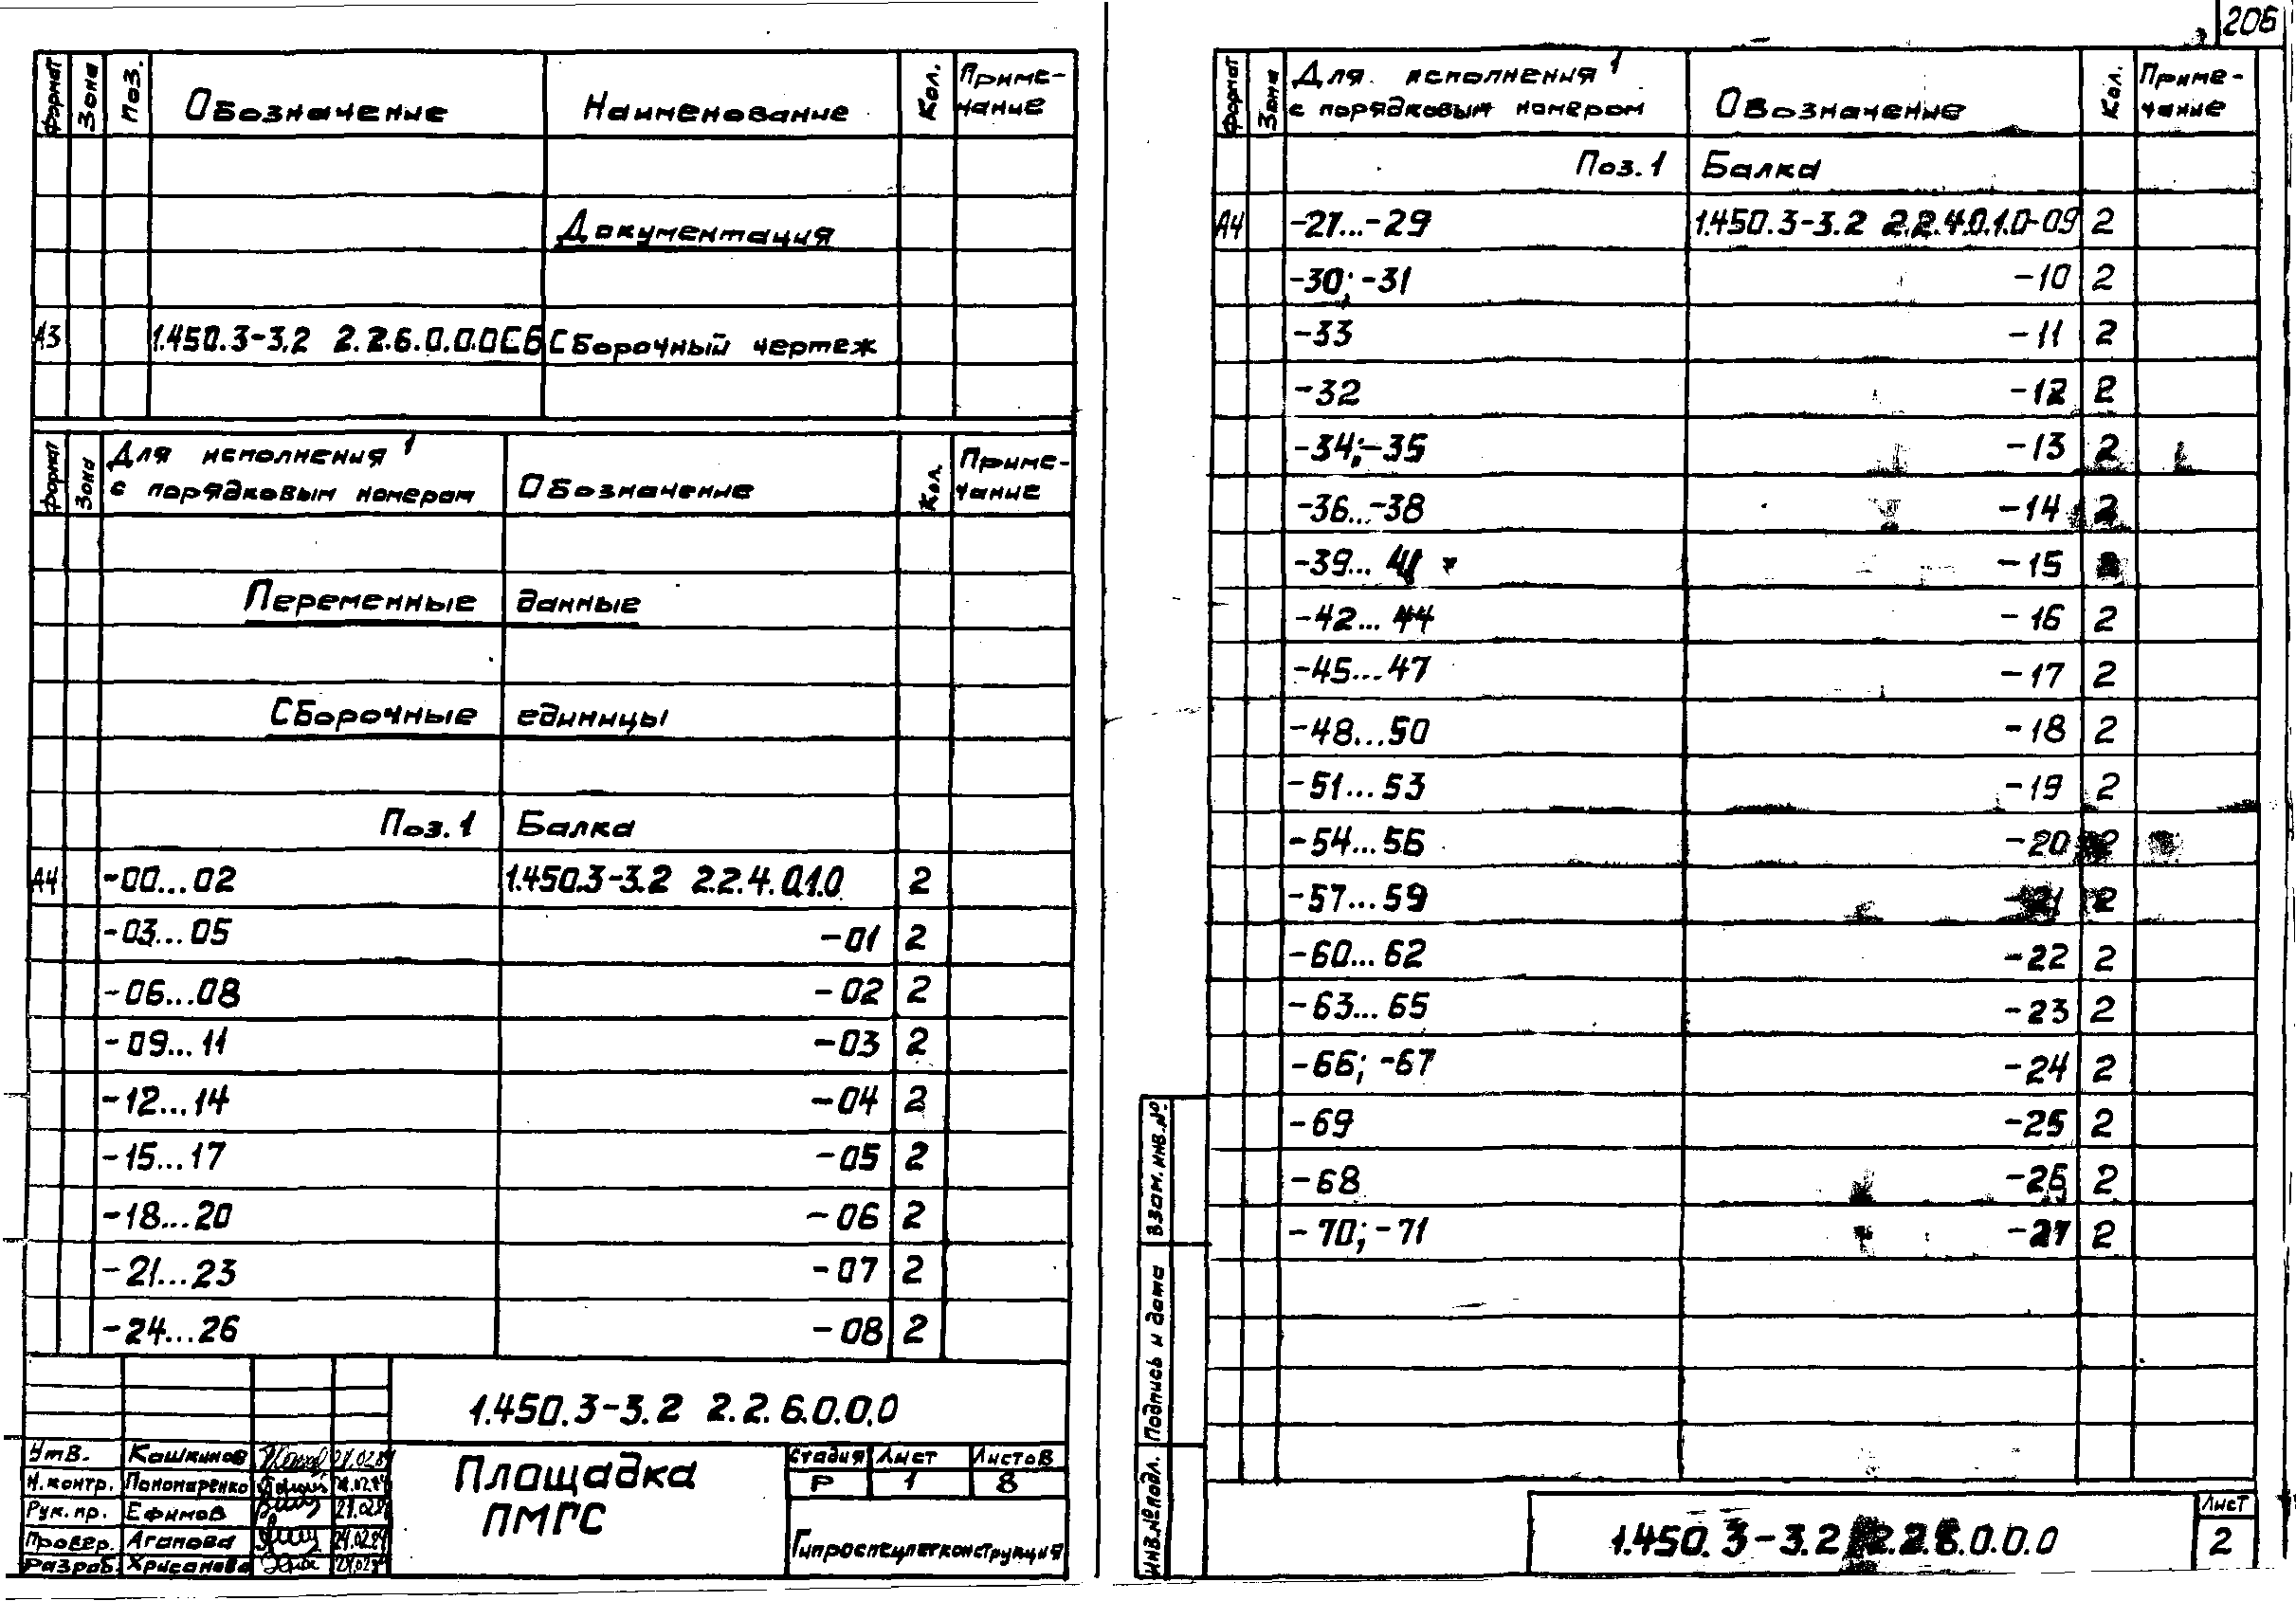 206
Формат Зона Поз. Обозначение Наименование Кол. Приме-
чание
Документация
А3 1.450.3-3.2 2.2.6.0.0.0СБ Сборочный чертеж
Формат Зона Для исполнения 1 Обозначение Кол. Приме-
с порядковым номером чание
Переменные данные
Сборочные единицы
Поз. 1 Балка
А4 -00...02 1.450.3-3.2 2.2.4.0.1.0 2
-03...05 -01 2
-06...08 -02 2
-09...11 -03 2
-12...14 -04 2
-15...17 -05 2
-18...20 -06 2
-21...23 -07 2
-24...26 -08 2
1.450.3-3.2 2.2.6.0.0.0
Утв. Кашкинов
Н.контр. Пономаренко
Рук.пр. Ефимов
Провер. Агапова
Разраб. Хрисанова
Площадка
ПМГС
Стадия Лист Листов
Р 1 8
Гипроспецлегконструкция
Формат Зона Для исполнения 1 Обозначение Кол. Приме-
с порядковым номером чание
Поз. 1 Балка
А4 -27...-29 1.450.3-3.2 2.2.4.0.1.0-09 2
-30; -31 -10 2
-33 -11 2
-32 -12 2
-34;-35 -13 2
-36...-38 -14 2
-39... 41 -15
-42... 44 -16 2
-45...47 -17 2
-48...50 -18 2
-51...53 -19 2
-54...56 -20 2
-57...59 -21 2
-60...62 -22 2
-63...65 -23 2
-66; -67 -24 2
-69 -25 2
-68 -26 2
-70; -71 -27 2
Взам. инв. №
Подпись и дата
Инв. № подл.
1.450.3-3.2 2.2.6.0.0.0
Лист
2